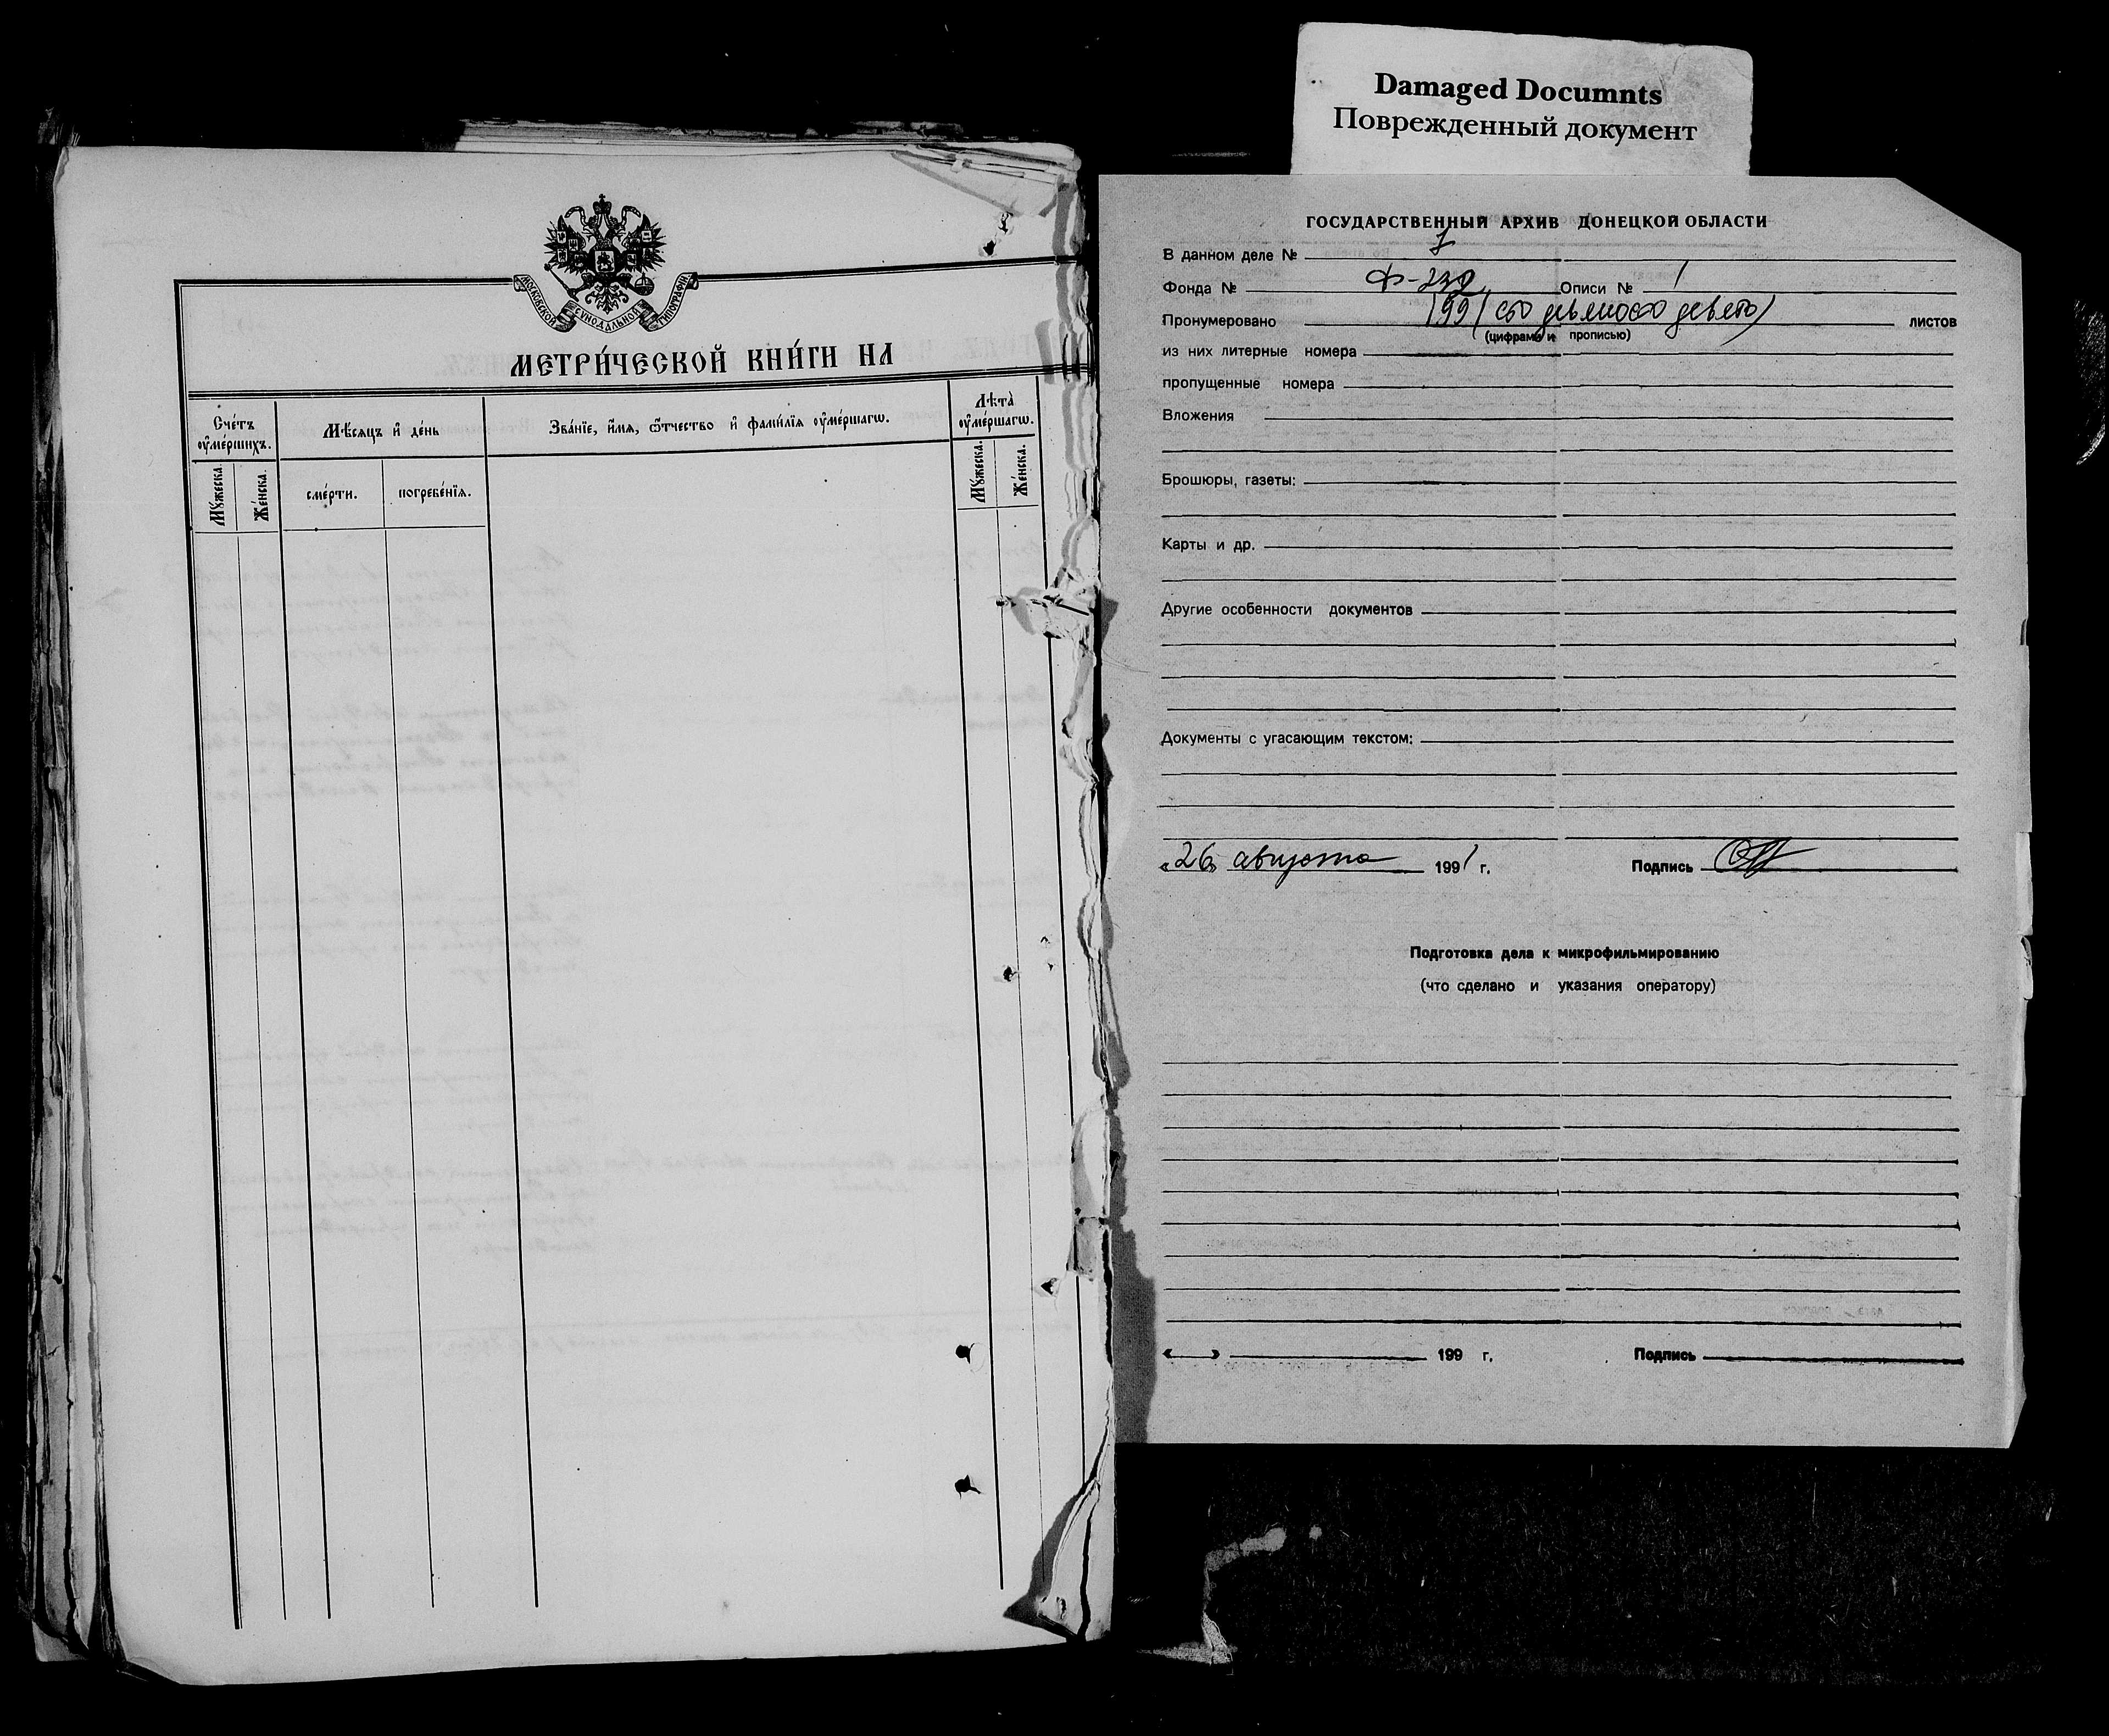 Damaged Documnts
Поврежденный документ
МОСКОВСКОЙ СѴНОДАЛЬНОЙ ТИПОГРАФІИ
МЕТРИ́ЧЕСКОЙ КНИ́ГИ НА
Сче́тъ ᲂу҆ме́ршихъ.
Мѣ́сяцъ и҆ де́нь
Зва́нїе, и҆́мя, ѻ҆́тчество и҆ фами́лїя ᲂу҆ме́ршагѡ.
Лѣта̀ ᲂу҆ме́ршагѡ.
Мꙋ́жеска.
Же́нска.
сме́рти.
погребе́нїя.
Мꙋ́жеска.
Же́нска.
ГОСУДАРСТВЕННЫЙ АРХИВ ДОНЕЦКОЙ ОБЛАСТИ
В данном деле №
Фонда № Описи № 1
Пронумеровано 199 (сто девяносто девять) листов
(цифрами и прописью)
из них литерные номера
пропущенные номера
Вложения
Брошюры, газеты:
Карты и др.
Другие особенности документов
Документы с угасающим текстом:
«26» августа 1991 г. Подпись
Подготовка дела к микрофильмированию
(что сделано и указания оператору)
« » 199 г. Подпись